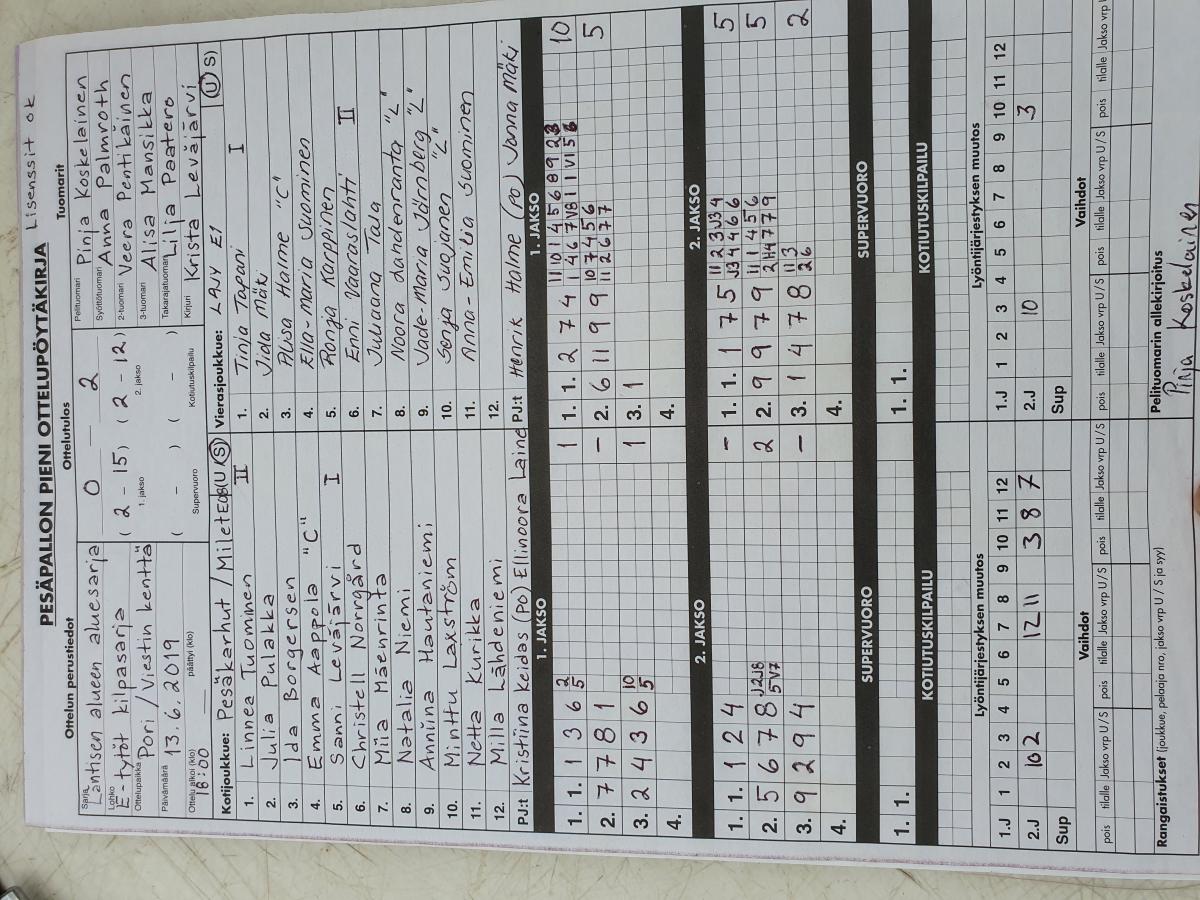 Lisenssit ok
PESÄPALLON PIENI OTTELUPÖYTÄKIRJA
Ottelun perustiedot Ottelutulos Tuomarit
Sarja Läntisen alueen aluesarja
Lohko E-tytöt kilpasarja
Ottelupaikka Pori / Viestin kenttä
Päivämäärä 13.6.2019
Ottelu alkoi (klo) 18:00 päättyi (klo)
0 2
(2 - 15) (2 - 12)
1. jakso 2. jakso
( - ) ( - )
Supervuoro Kotiutuskilpailu
Pelituomari Pinja Koskelainen
Syöttötuomari Anna Palmroth
2-tuomari Veera Pentikäinen
3-tuomari Alisa Mansikka
Takarajatuomari Lilja Paatero
Kirjuri Krista Leväjärvi
Kotijoukkue: Pesäkarhut / Milet E08 (U S)
1. Linnea Tuominen II
2. Julia Pulakka
3. Ida Borgersen
4. Emma Aappola "C"
5. Sanni Leväjärvi I
6. Christell Norrgård
7. Miia Mäenrinta
8. Natalia Niemi
9. Anniina Hautaniemi
10. Minttu Laxström
11. Netta Kurikka
12. Milla Lähdeniemi
PJ:t Kristiina Keidas (PO) Ellinoora Laine
Vierasjoukkue: LAJY E1 (U S)
1. Tinja Tapani I
2. Iida Mäki
3. Aliisa Halme "C"
4. Ella-Maria Suominen
5. Ronja Karppinen
6. Enni Vaaraslahti II
7. Juliaana Tala
8. Noora dahdenranta "L"
9. Jade-Maria Järnberg "L"
10. Senja Suojanen "L"
11. Anna-Emilia Suominen
12.
PJ:t Henrik Halme (PO) Janna Mäki
1. JAKSO 1. JAKSO
1. 1. 1 3 6 2 5 1
2. 7 7 8 1 –
3. 2 4 3 6 10 5 1
4.
1. 1. 2 7 4 10
2. 6 11 9 9 5
3. 1
4.
2. JAKSO 2. JAKSO
1. 1. 1 2 4 –
2. 5 6 7 8 J2 J8 5 V7 2
3. 9 2 9 4 –
4.
1. 1. 1 7 5 5
2. 9 9 7 9 5
3. 1 4 7 8 11 3 2 6 2
4.
SUPERVUORO SUPERVUORO
1. 1. 1. 1.
KOTIUTUSKILPAILU KOTIUTUSKILPAILU
Lyöntijärjestyksen muutos Lyöntijärjestyksen muutos
1.J 1 2 3 4 5 6 7 8 9 10 11 12
2.J 10 2 12 11 3 8 7
Sup
1.J 1 2 3 4 5 6 7 8 9 10 11 12
2.J 10 3
Sup
Vaihdot Vaihdot
pois tilalle Jakso vrp U/S pois tilalle Jakso vrp U/S pois tilalle Jakso vrp U/S
pois tilalle Jakso vrp U/S pois tilalle Jakso vrp U/S pois tilalle Jakso vrp
Rangaistukset (joukkue, pelaaja nro, jakso vrp U / S ja syy)
Pelituomarin allekirjoitus
Pinja Koskelainen